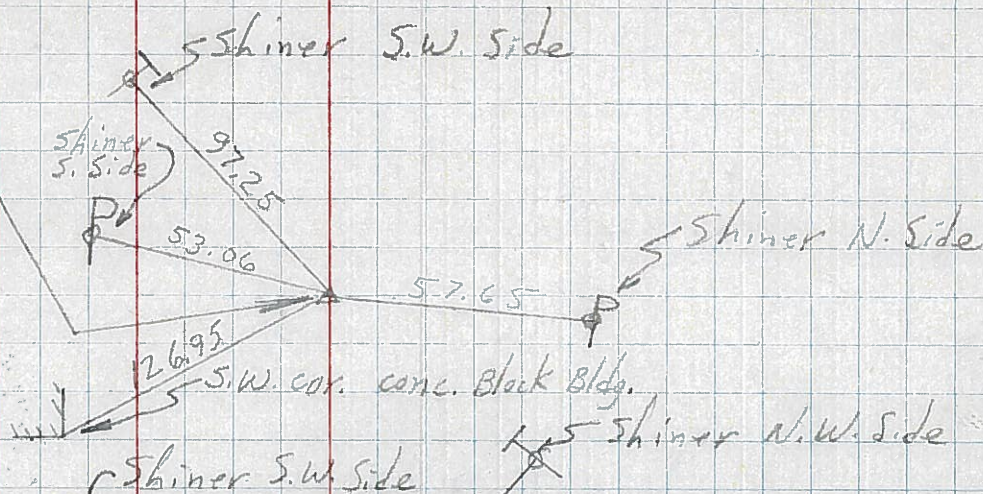 Shiner S.W. Side
Shiner
S. Side
97.25
P
53.06
Shiner N. Side
57.65
P
126.95
S.W. cor. conc. Block Bldg.
Shiner N.W. Side
Shiner S.W. Side